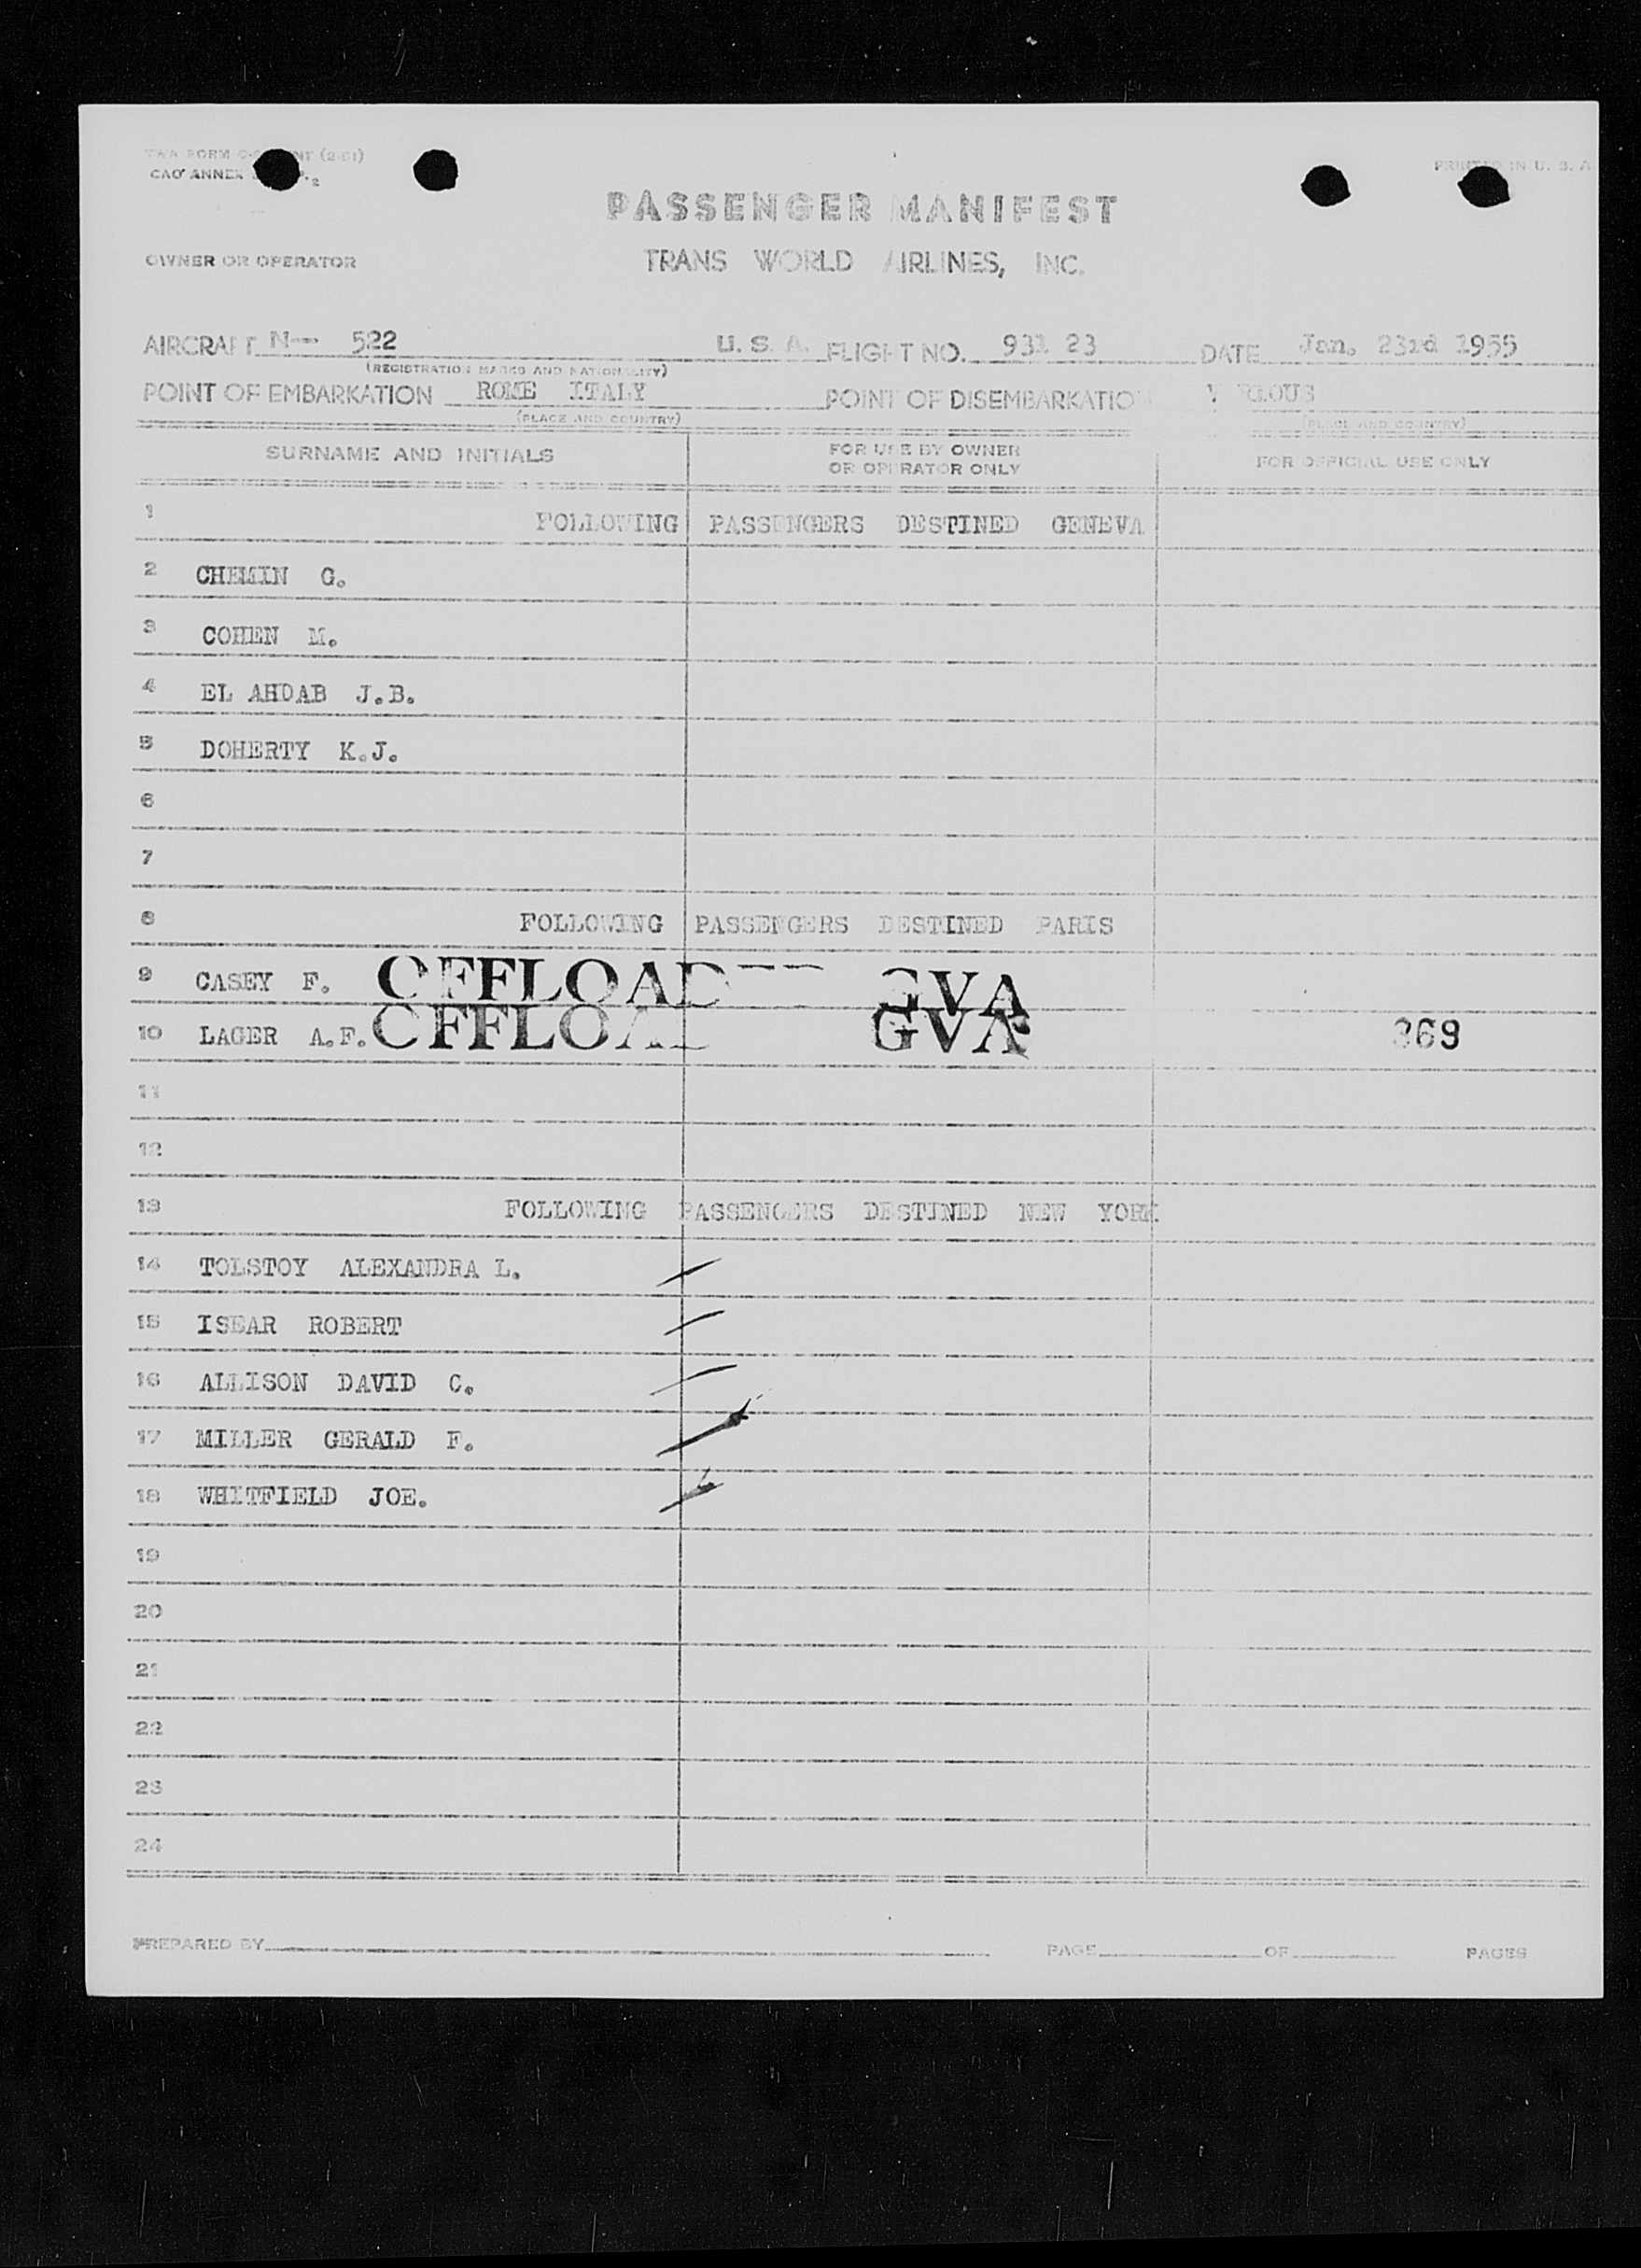 PRINTED IN U. S. A
PASSENGER MANIFEST
OWNER OR OPERATOR TRANS WORLD AIRLINES, INC.
AIRCRAFT N-- 522 U. S. A. FLIGHT NO. 931 23 DATE Jan. 23rd 1955
(REGISTRATION MARKS AND NATIONALITY)
POINT OF EMBARKATION ROME ITALY POINT OF DISEMBARKATION VARIOUS
(PLACE AND COUNTRY) (PLACE AND COUNTRY)
SURNAME AND INITIALS FOR USE BY OWNER OR OPERATOR ONLY FOR OFFICIAL USE ONLY
1 FOLLOWING PASSENGERS DESTINED GENEVA
2 CHEMIN G.
3 COHEN M.
4 EL AHDAB J.B.
5 DOHERTY K.J.
6
7
8 FOLLOWING PASSENGERS DESTINED PARIS
9 CASEY F. OFFLOADED GVA
10 LAGER A.F. OFFLOA GVA 369
11
12
13 FOLLOWING PASSENGERS DESTINED NEW YORK
14 TOLSTOY ALEXANDRA L.
15 ISEAR ROBERT
16 ALLISON DAVID C.
17 MILLER GERALD F.
18 WHITFIELD JOE.
19
20
21
22
23
24
PREPARED BY PAGE OF PAGES